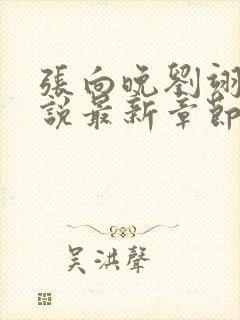 張向晚劉翊
說最新章節
吳洪聲